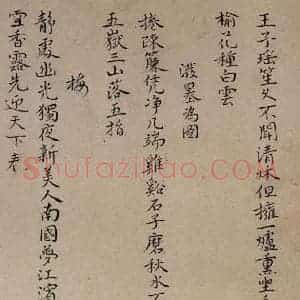 王子瑶笙久不聞清
但擁一爐熏坐
榆花種白雲
潑墨為圖
捲疎簾凭淨几端雞谿石子磨秋水
五嶽三山落五指
梅
靜處逃光獨夜新美人南國夢江濱
雪香露先迎天下春
Shufazidao.com